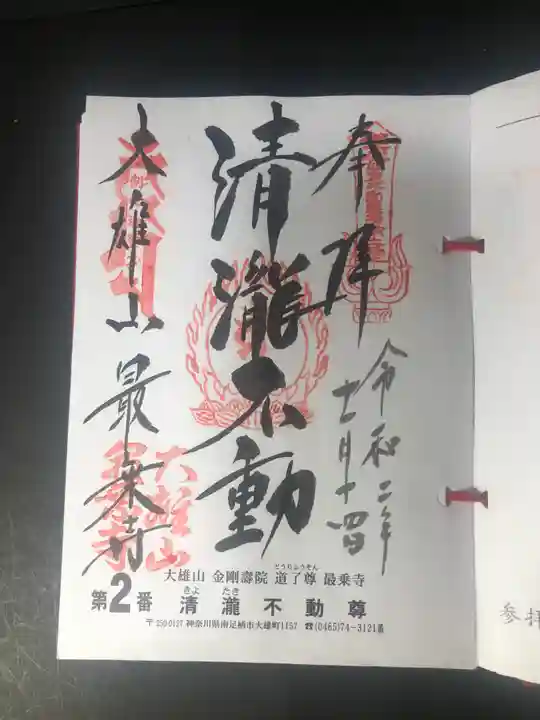 奉拝
令和二年
十一月十四日
清瀧不動
大雄山最乗寺
大雄山
どうりょうそん
大雄山 金剛壽院 道了尊 最乗寺
きよ たき
第2番 清瀧不動尊
〒250-0127 神奈川県南足柄市大雄町1157 ☎(0465)74-3121㈹
参拝